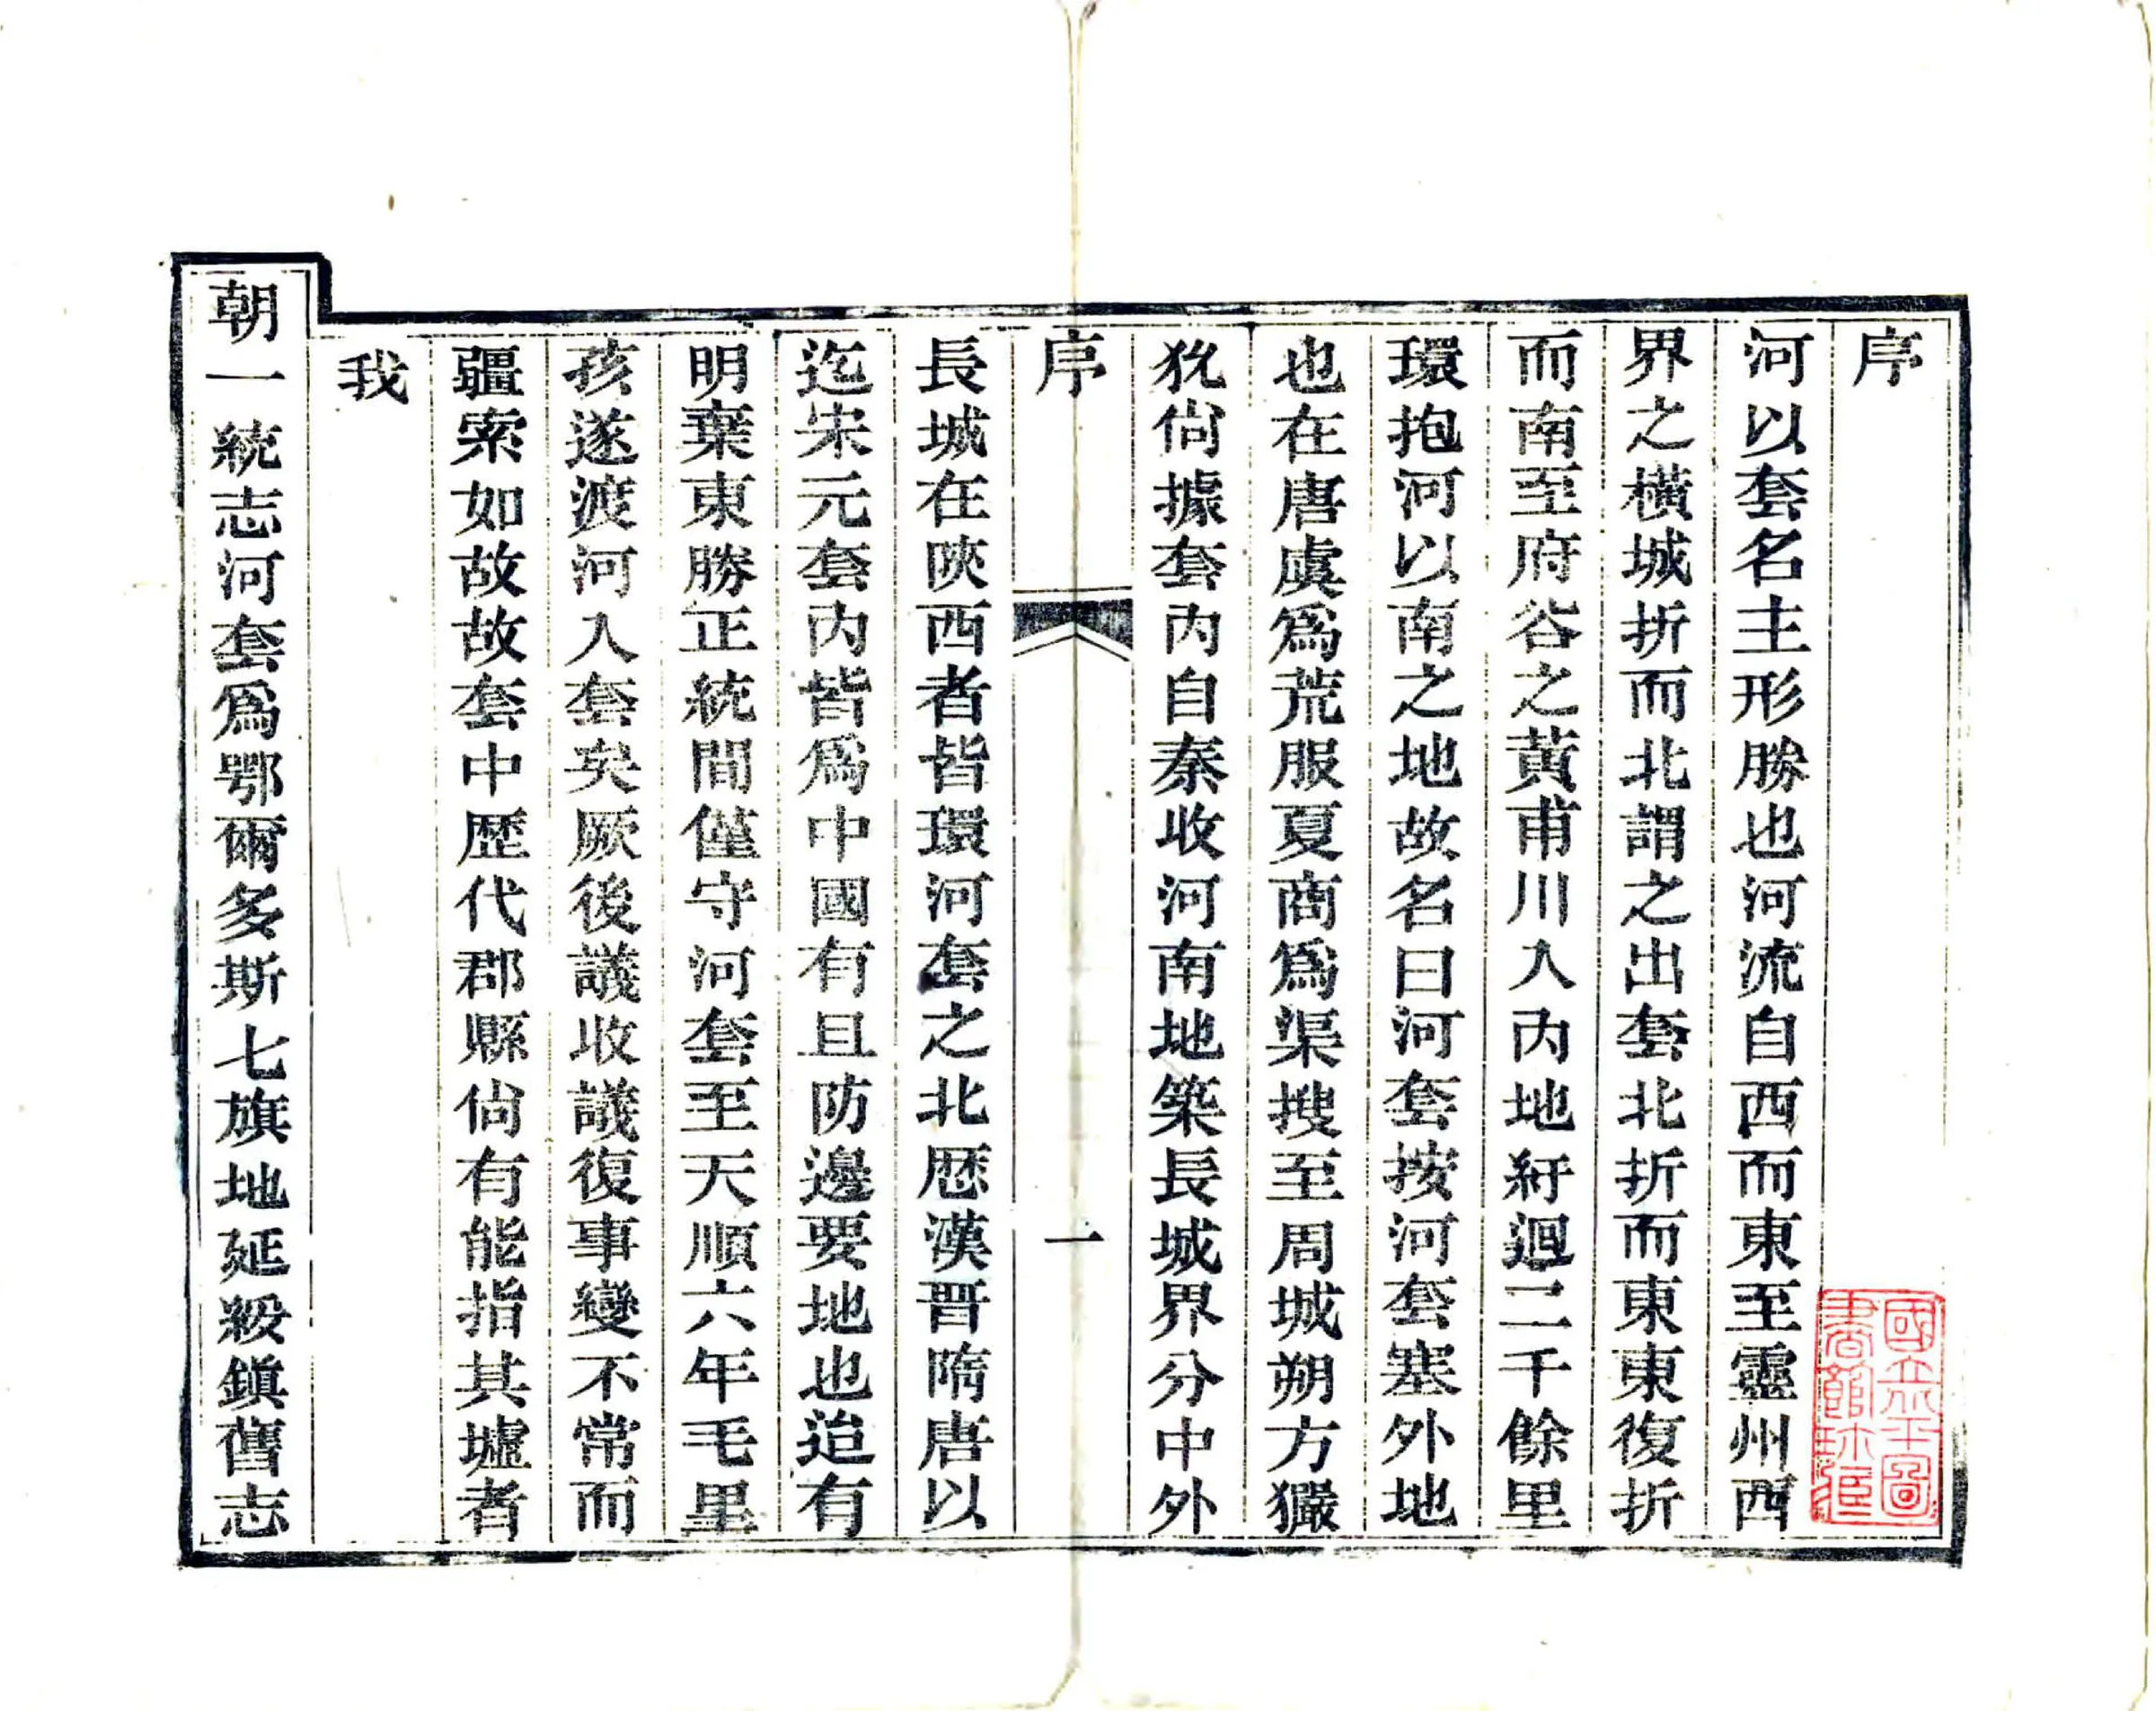 序
河以套名主形勝也河流自西而東至靈州西
界之橫城折而北謂之出套北折而東東復折
而南至府谷之黃甫川入內地紆迴二千餘里
環抱河以南之地故名曰河套按河套塞外地
也在唐虞爲荒服夏商爲渠搜至周城朔方玁
狁尙據套內自秦收河南地築長城界分中外
序
一
長城在陝西者皆環河套之北厯漢晋隋唐以
迄宋元套內皆爲中國有且防邊要地也迨有
明棄東勝正統間僅守河套至天順六年毛里
孩遂渡河入套矣厥後議收議復事變不常而
疆索如故故套中歷代郡縣尙有能指其墟者
我
朝一統志河套爲鄂爾多斯七旗地延綏鎭舊志
國立北平圖
書館珍藏